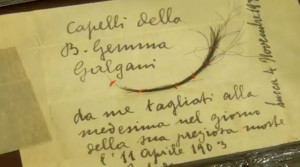 Capelli della
B. Gemma
Galgani
da me tagliati alla
medesima nel giorno
della sua preziosa morte
l'11 Aprile 1903
Lucca 4 Novembre